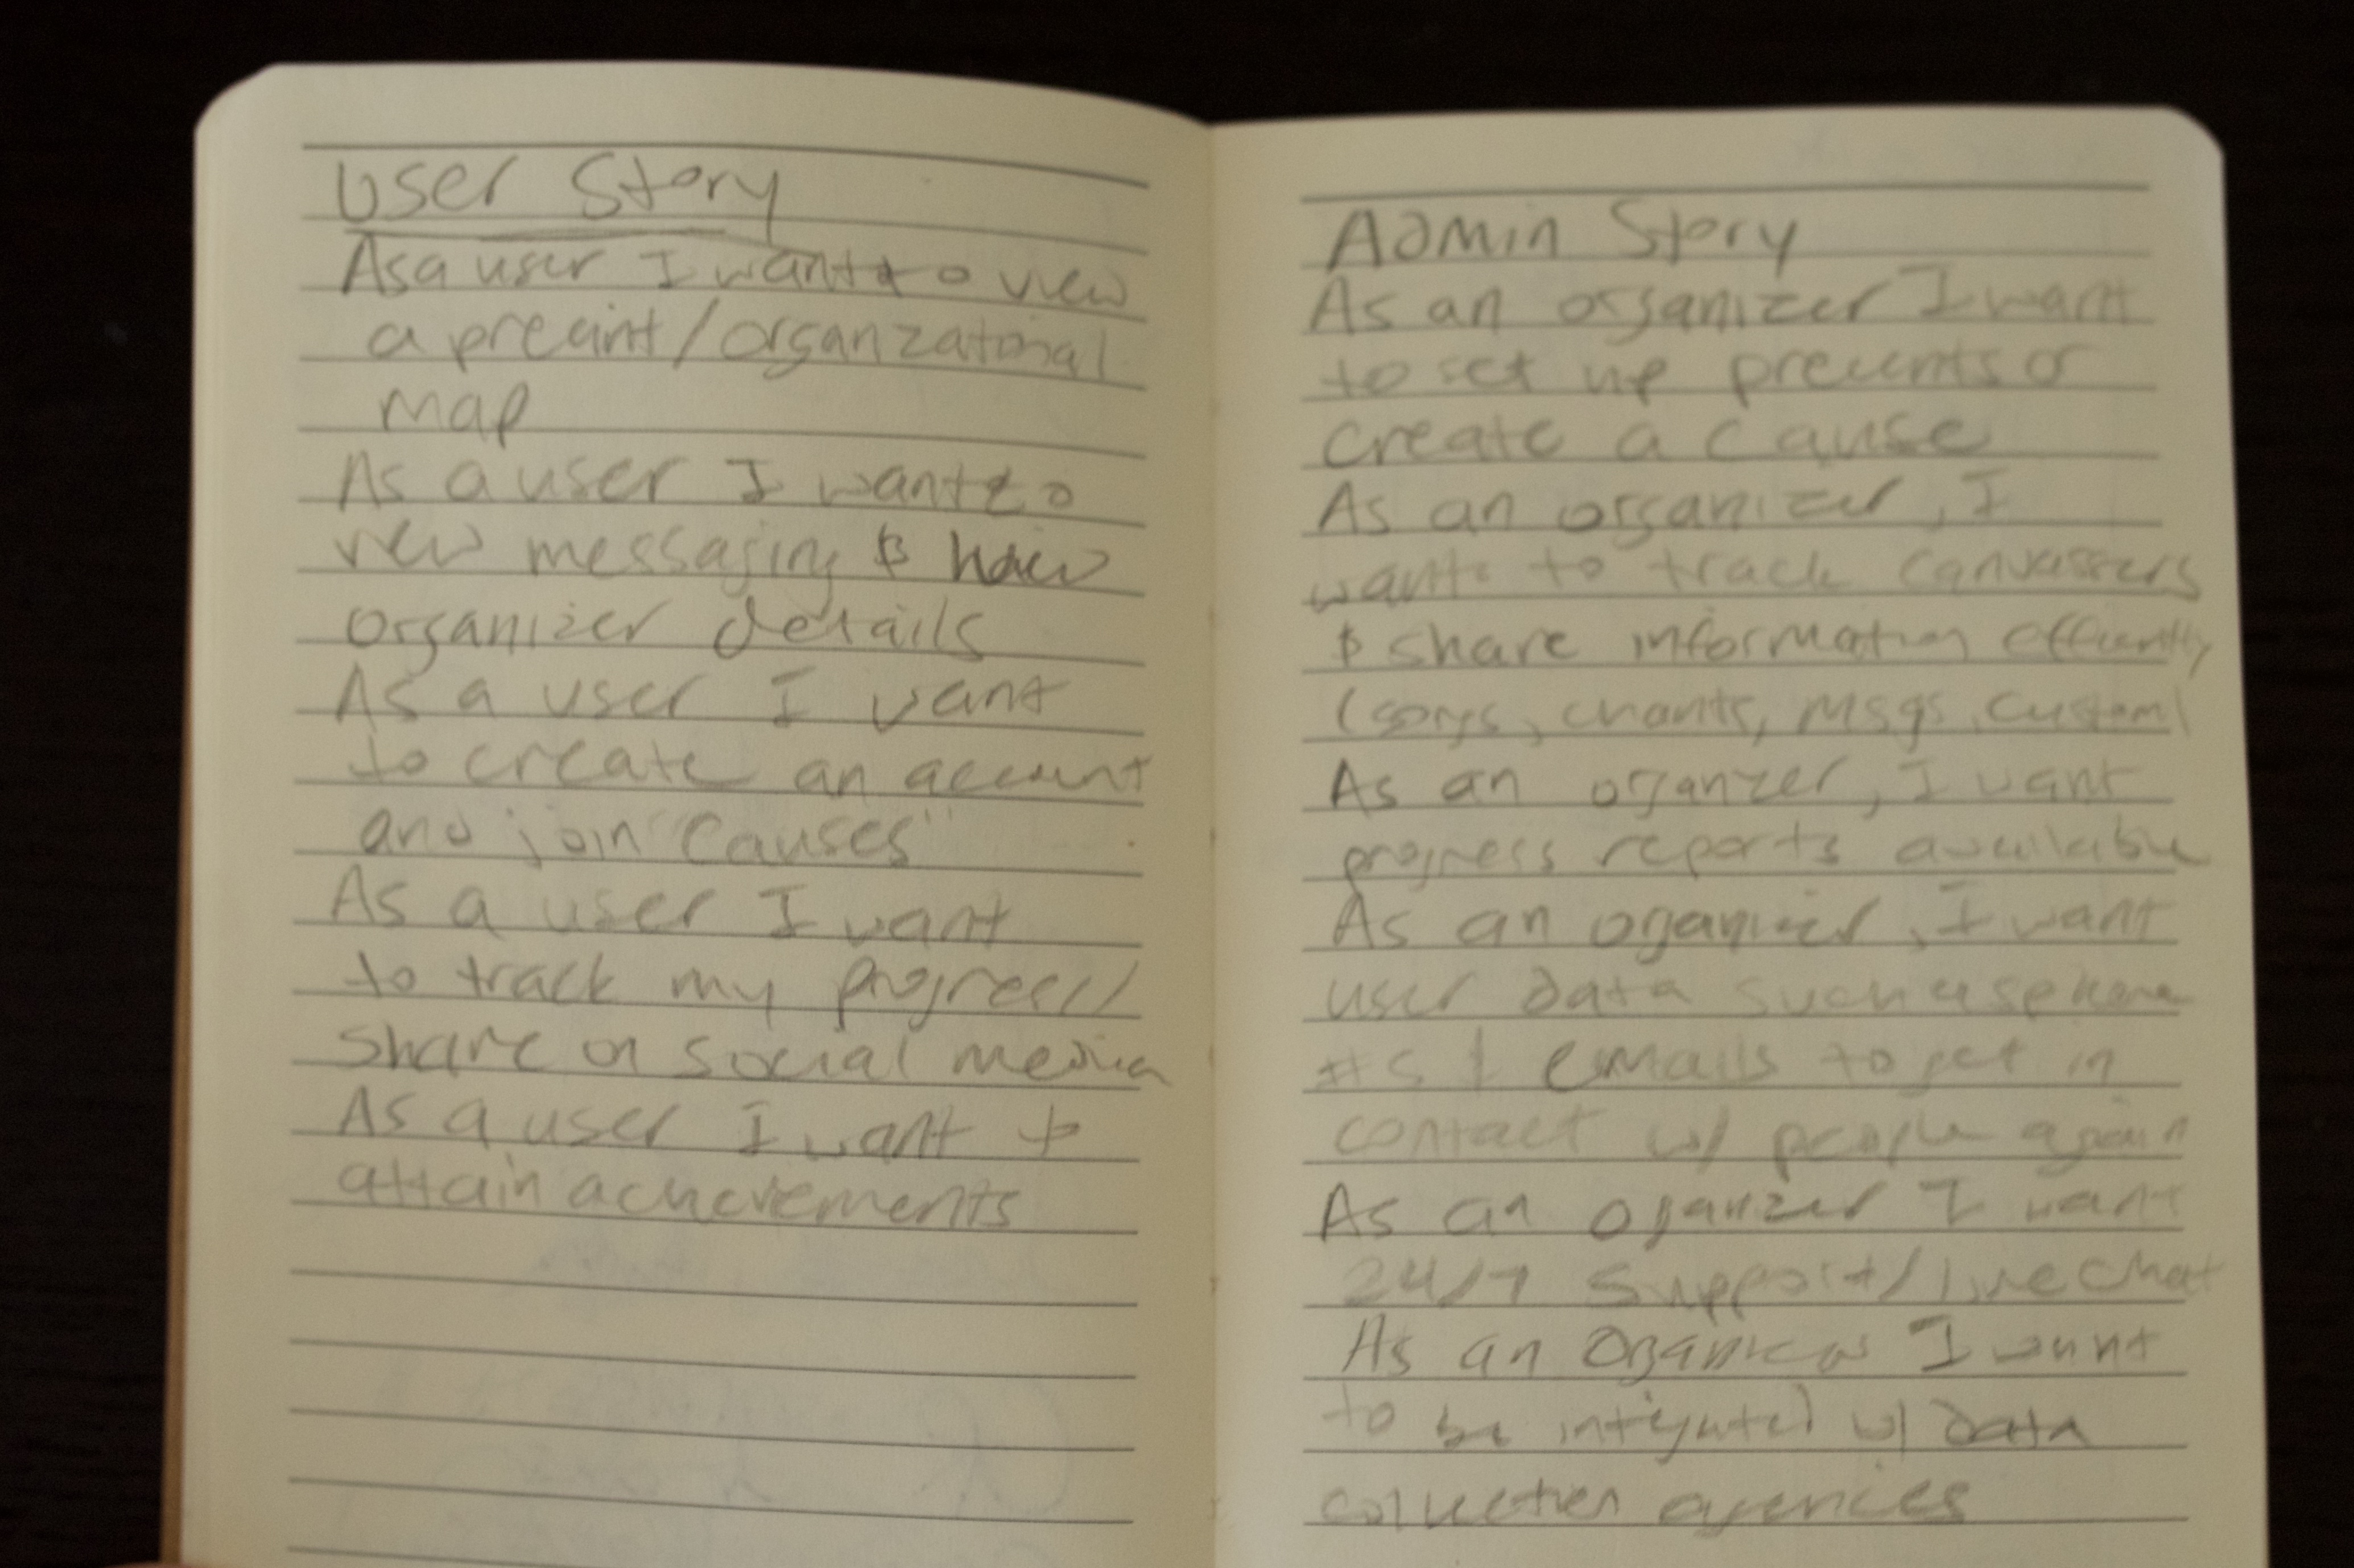 User Story
As a user I want to view
a precint/organzatonal
map
As a user I want to
view messaging & how
organizer details
As a user I want
to create an account
and join "causes"
As a user I want
to track my progress/
share on social media
As a user I want to
attain achievements
Admin Story
As an organizer I want
to set up precints or
create a cause
As an organizer, I
want to track canvassers
& share information
(songs, chants, msgs, custom)
As an organzer, I want
progress reports available
As an oganizer, I want
user data such as phone
#s & emails to get in
contact w/ people again
As an oganizer I want
24/7 support/live chat
As an Organizer I want
to be integrated w/ data
collection agencies